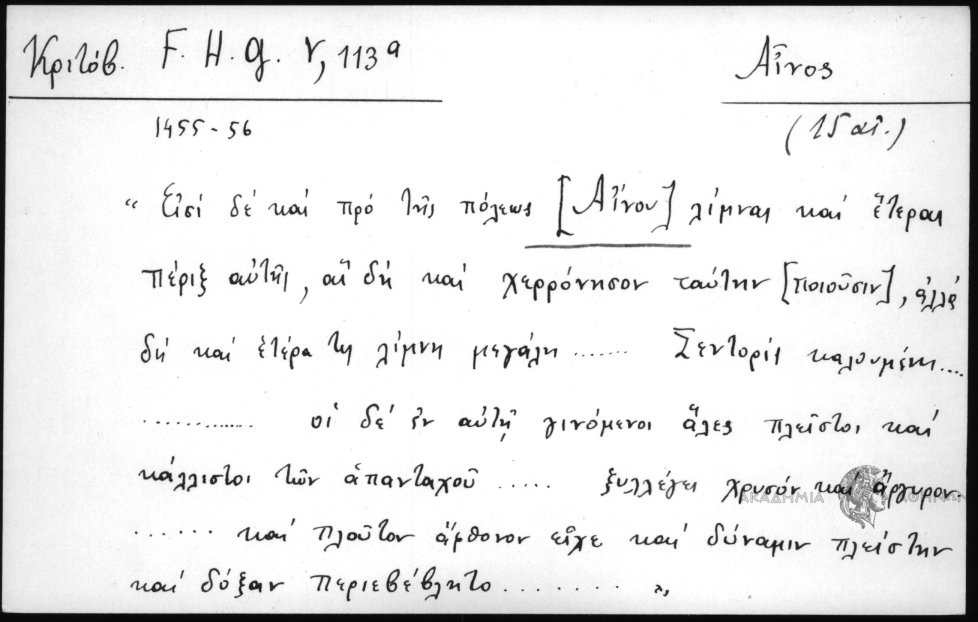 Κριτόβ. F. H. G. V, 113ᵃ
Αἶνος
1455-56
(15 αἰ.)
“ Εἰσί δέ καί πρό τῆς πόλεως [Αἴνου] λίμναι καί ἕτεραι
πέριξ αὐτῆς, αἵ δή καί χερρόνησον ταύτην [ποιοῦσιν], ἀλλά
δή καί ἑτέρα τις λίμνη μεγάλη ...... Σεντορίς καλουμένη....
............. οἱ δέ ἐν αὐτῇ γινόμενοι ἅλες πλεῖστοι καί
κάλλιστοι τῶν ἁπανταχοῦ ..... ξυλλέγει χρυσόν καί ἄργυρον
...... καί πλοῦτον ἄφθονον εἶχε καί δύναμιν πλείστην
καί δόξαν περιεβέβλητο ........ ”
ΑΚΑΔΗΜΙΑ ΑΘΗΝΩΝ